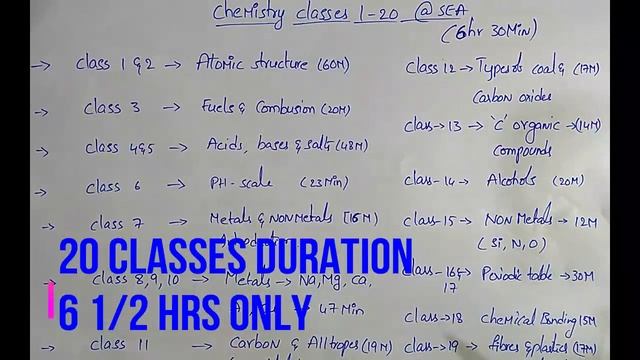 Chemistry classes 1-20 @ SEA
(6hr 30Min)
→ Class 1 & 2 → Atomic structure (60M)
→ Class 3 → Fuels & Combusion (20M)
→ Class 4&5 → Acids, bases & salts (48M)
→ Class 6 → PH-scale (23Min)
→ Class 7 → Metals & NonMetals [16M)
→ Class 8,9,10 → Metals → Na, Mg, Ca,
47 Min
→ Class 11 → Carbon & Alltropes (19M)
Class 12 → Types of coal & (17M)
Carbon oxides
class → 13 → 'C' organic → (14M)
compounds
class-14 → Alcohols (20M)
class-15 → Non Metals → 12M
(Si, N, O)
class-16&17 → Periodic table → 30M
class → 18 Chemical Bonding 15M
class → 19 → fibres & plastics (17M)
20 CLASSES DURATION
6 1/2 HRS ONLY